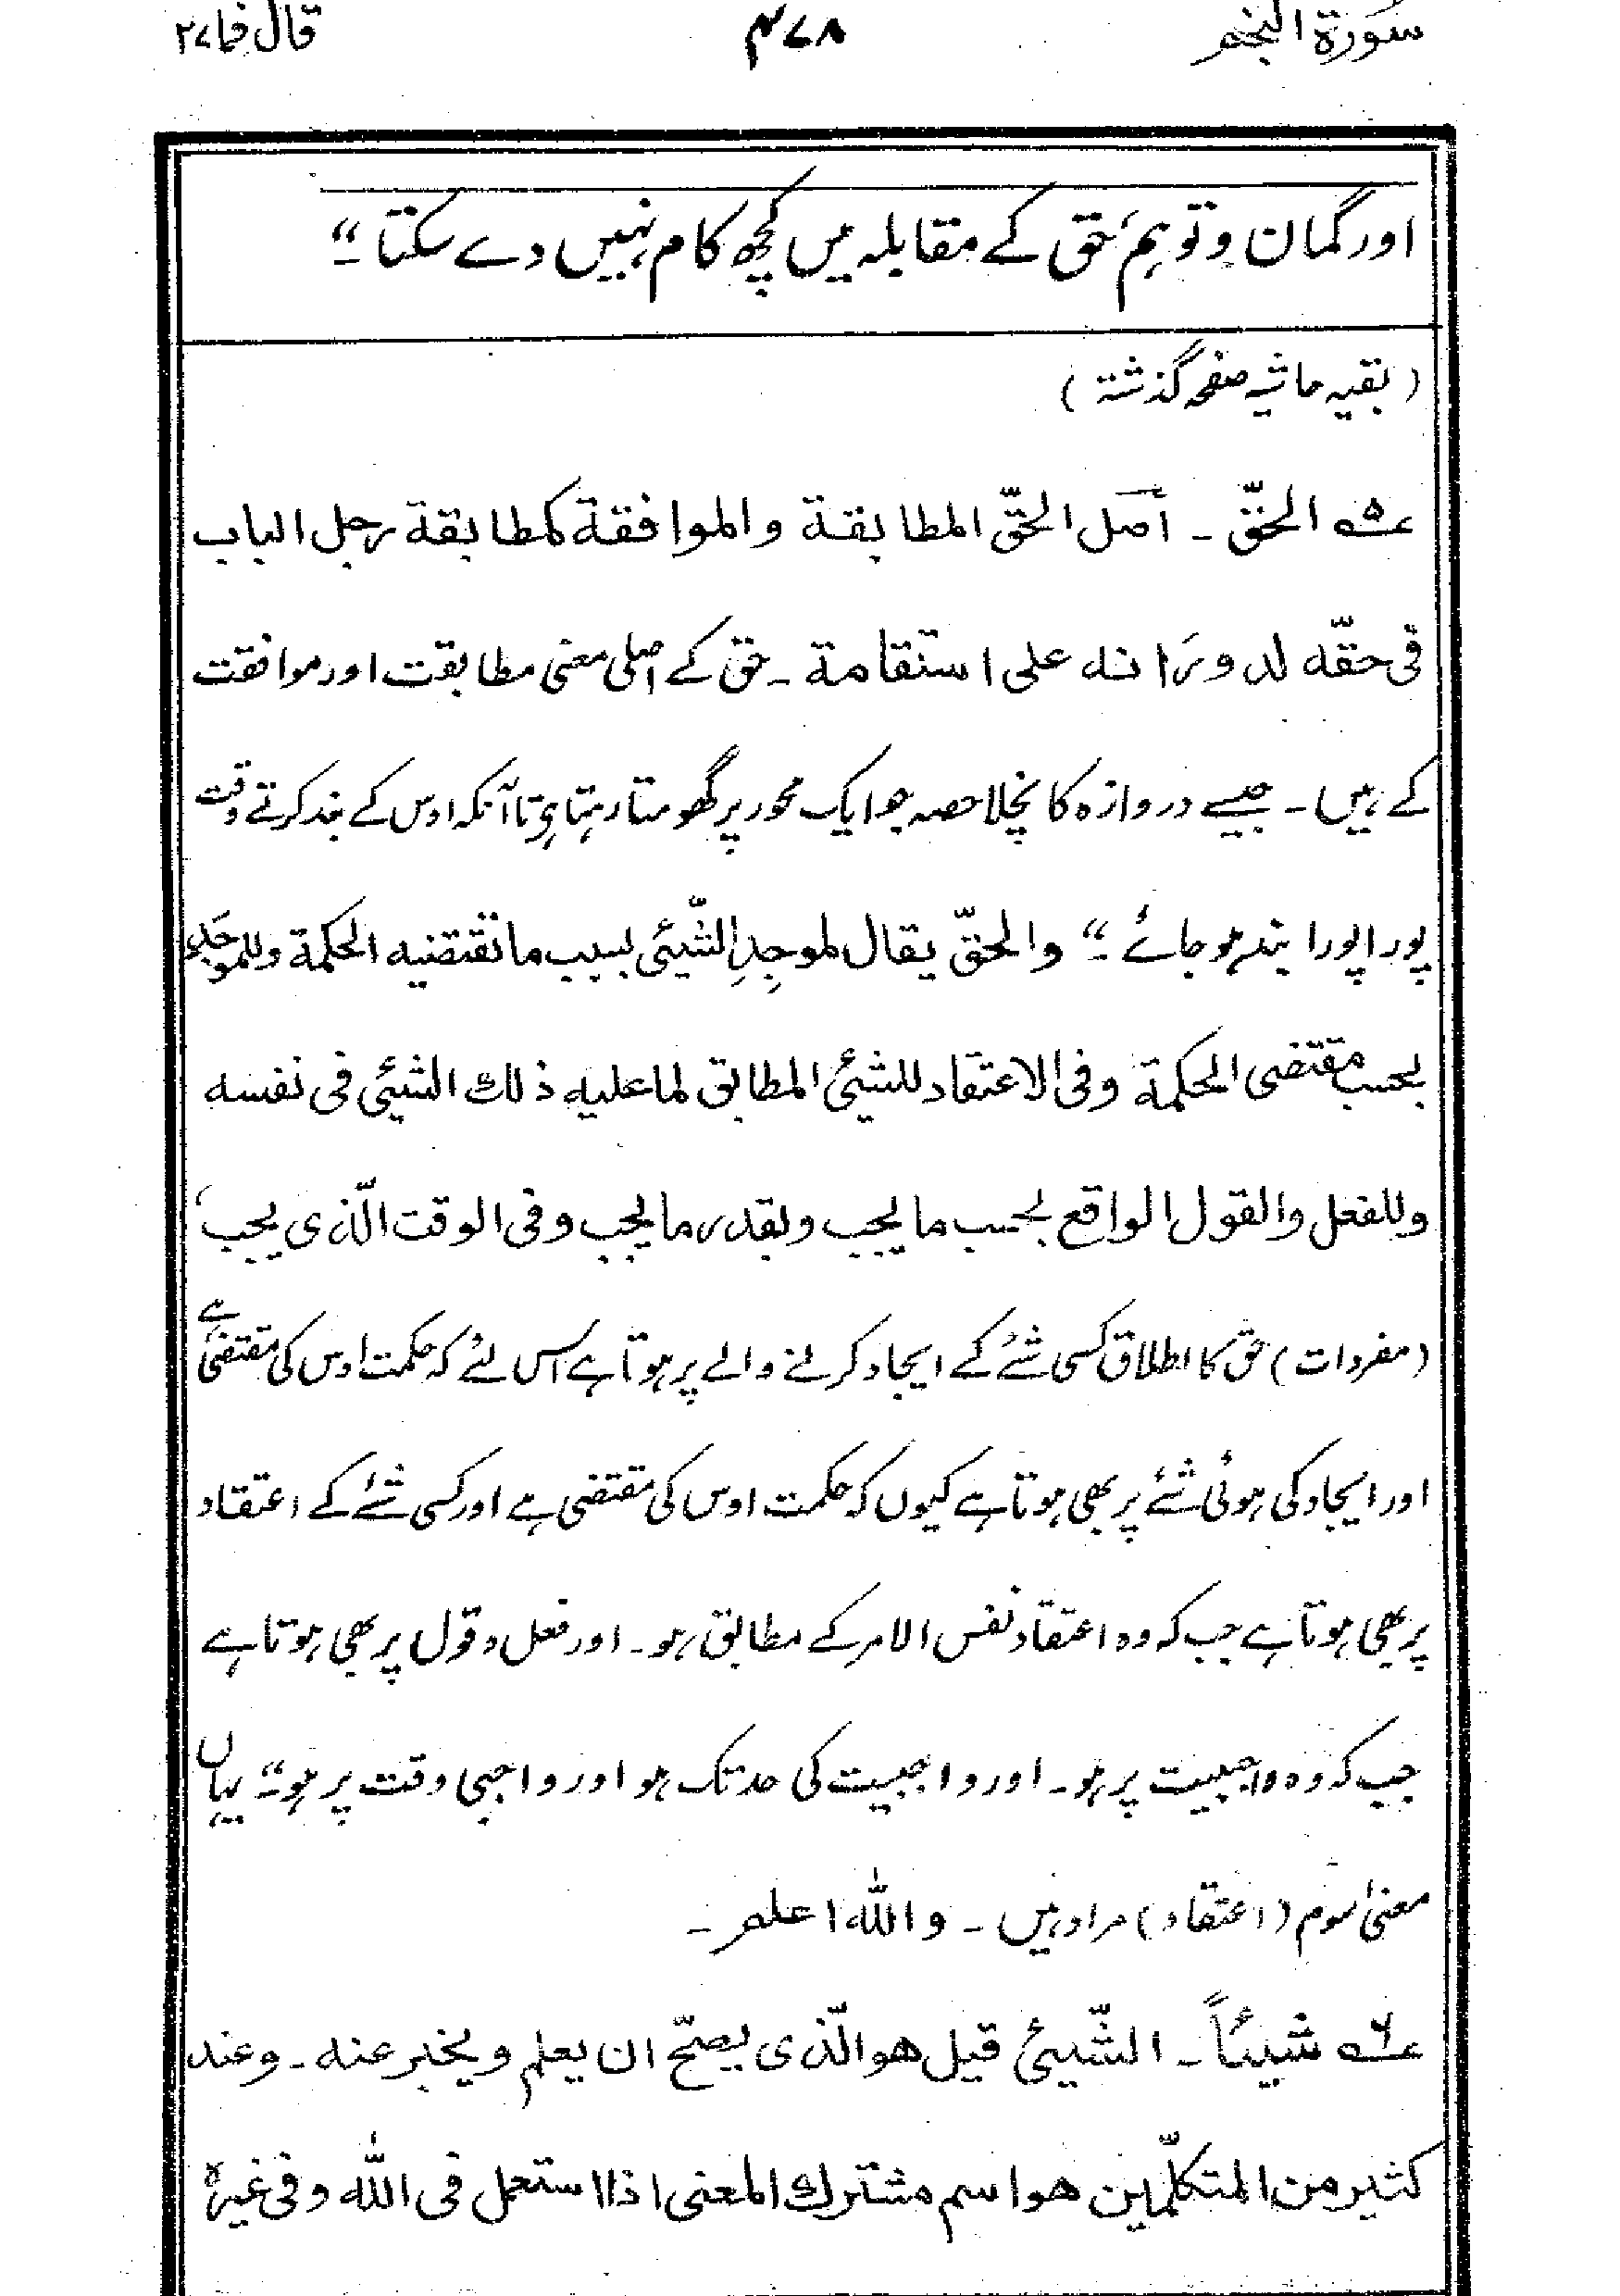 سورة النجم
۴۷۸
قال فما ۲۷
اور گمان و توہم حق کے مقابلہ میں کچھ کام نہیں دے سکتا ۔“
( بقیہ حاشیہ صفحہ گذشتہ )
۵؎ الحقّ ۔ اصل الحقّ المطابقة والموافقة كمطابقة رجل الباب
فى حقّه لدورانه على استقامة ۔ حق کے اصلی معنی مطابقت اور موافقت
کے ہیں ۔ جیسے دروازہ کا نچلا حصہ جو ایک محور پر گھومتا رہتا ہے تا آنکہ اوس کے بند کرتے وقت
پورا پورا بند ہو جائے ۔“ والحقّ يقال لموجِدِ الشّيئى بسبب ما تقتضيه الحكمة وللموجَدِ
بحسب مقتضى الحكمة وفى الاعتقاد للشيئى المطابق لما عليه ذلك الشيئى فى نفسه
وللفعل والقول الواقع بحسب ما يجب وبقدر ما يجب وفى الوقت الّذى يجب
(مفردات) حق کا اطلاق کسی شئے کے ایجاد کرنے والے پر ہوتا ہے اس لئے کہ حکمت اوس کی مقتضی ہے
اور ایجاد کی ہوئی شئے پر بھی ہوتا ہے کیوں کہ حکمت اوس کی مقتضی ہے اور کسی شئے کے اعتقاد
پر بھی ہوتا ہے جب کہ وہ اعتقاد نفس الامر کے مطابق ہو ۔ اور فعل و قول پر بھی ہوتا ہے
جب کہ وہ واجبیت پر ہو ۔ اور واجبیت کی حد تک ہو اور واجبی وقت پر ہو ۔“ یہاں
معنیٰ سوم (اعتقاد) مراد ہیں ۔ والله اعلم ۔
۶؎ شيئاً ۔ الشّيئى قيل هو الّذى يصحّ ان يعلم ويخبر عنه ۔ وعند
كثير من المتكلّمين هو اسم مشترك المعنى اذا استعمل فى الله وفى غيره